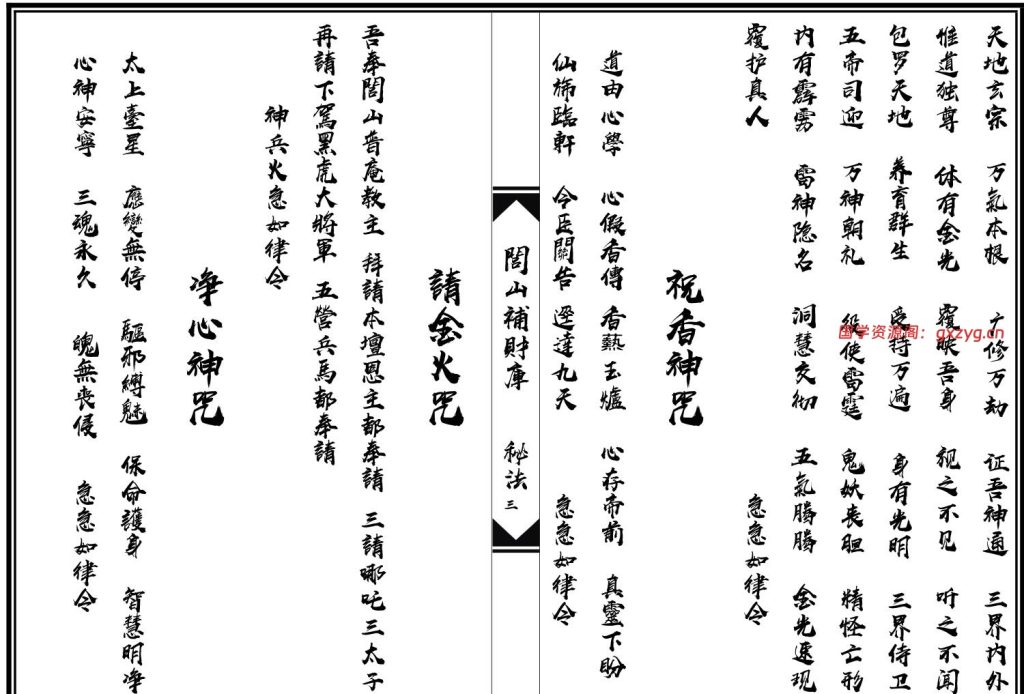 天地玄宗 万氣本根 广修万劫 证吾神通 三界内外
惟道独尊 体有金光 覆映吾身 视之不见 听之不闻
包罗天地 养育群生 受持万遍 身有光明 三界侍卫
五帝司迎 万神朝礼 役使雷霆 鬼妖丧胆 精怪亡形
内有霹雳 雷神隐名 洞慧交彻 五氣腾腾 金光速现
覆护真人 急急如律令
祝香神咒
道由心學 心假香傳 香爇玉爐 心存帝前 真靈下盼
仙旆臨軒 令臣關告 逕達九天 急急如律令
閭山補財庫 秘法 三
請金火咒
吾奉閭山普庵教主 拜請本壇恩主都奉請 三請哪吒三太子
再請下駕黑虎大將軍 五營兵馬都奉請
神兵火急如律令
净心神咒
太上臺星 應變無停 驅邪縛魅 保命護身 智慧明净
心神安寧 三魂永久 魄無喪侵 急急如律令
国学资源阁：gxzyg.cn